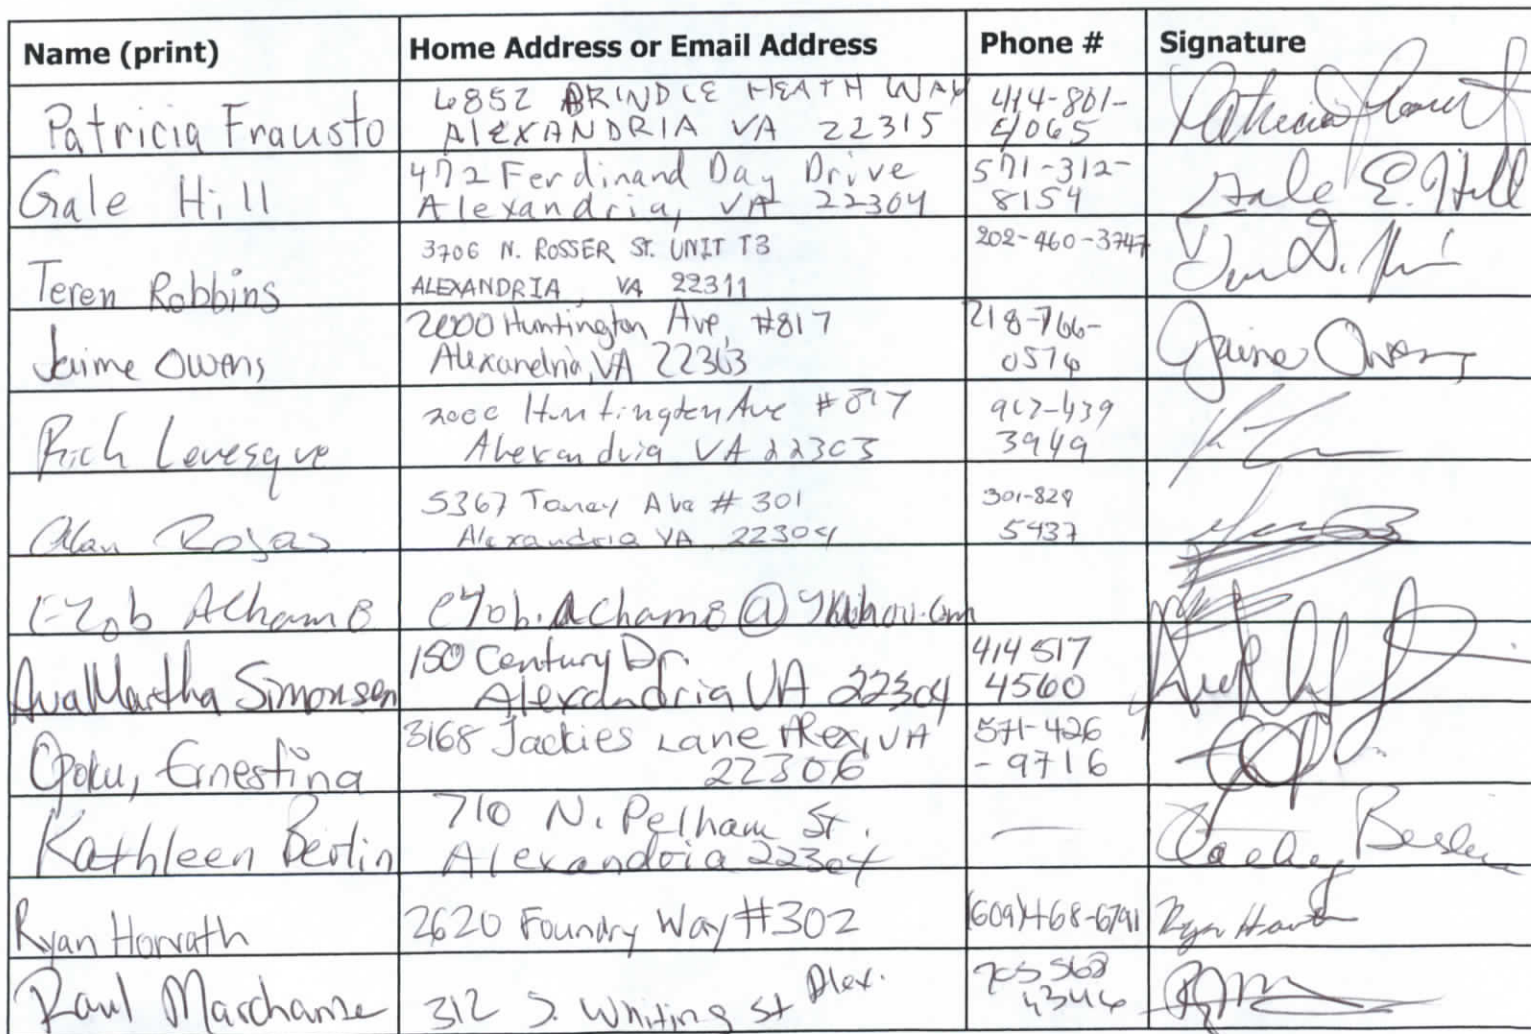 Name (print) Home Address or Email Address Phone # Signature
Patricia Frausto
6852 BRINDLE HEATH WAY
ALEXANDRIA VA 22315
414-801-
4065
Gale Hill
472 Ferdinand Day Drive
Alexandria, VA 22304
571-312-
8154
Gale E. Hill
Teren Robbins
3706 N. ROSSER ST. UNIT T3
ALEXANDRIA, VA 22311
202-460-3747
Jaime Owens
2000 Huntington Ave, #817
Alexandria, VA 22303
218-766-
0576
Jaime Owens
Rich Levesque
2000 Huntington Ave #817
Alexandria VA 22303
917-439
3949
Alan Rojas
5367 Taney Ave # 301
Alexandria VA 22304
301-829
5437
Achame
AvaMartha Simonsen
150 Century Dr.
Alexandria VA 22304
414 517
4560
Opoku, Ernestina
3168 Jackies Lane Alex, VA
22306
571-426
-9716
Kathleen Berlin
710 N. Pelham St.
Alexandria 22304
—
Ryan Horvath
2620 Foundry Way #302
(609)468-6791
Raul
312 S. Whiting St Alex.